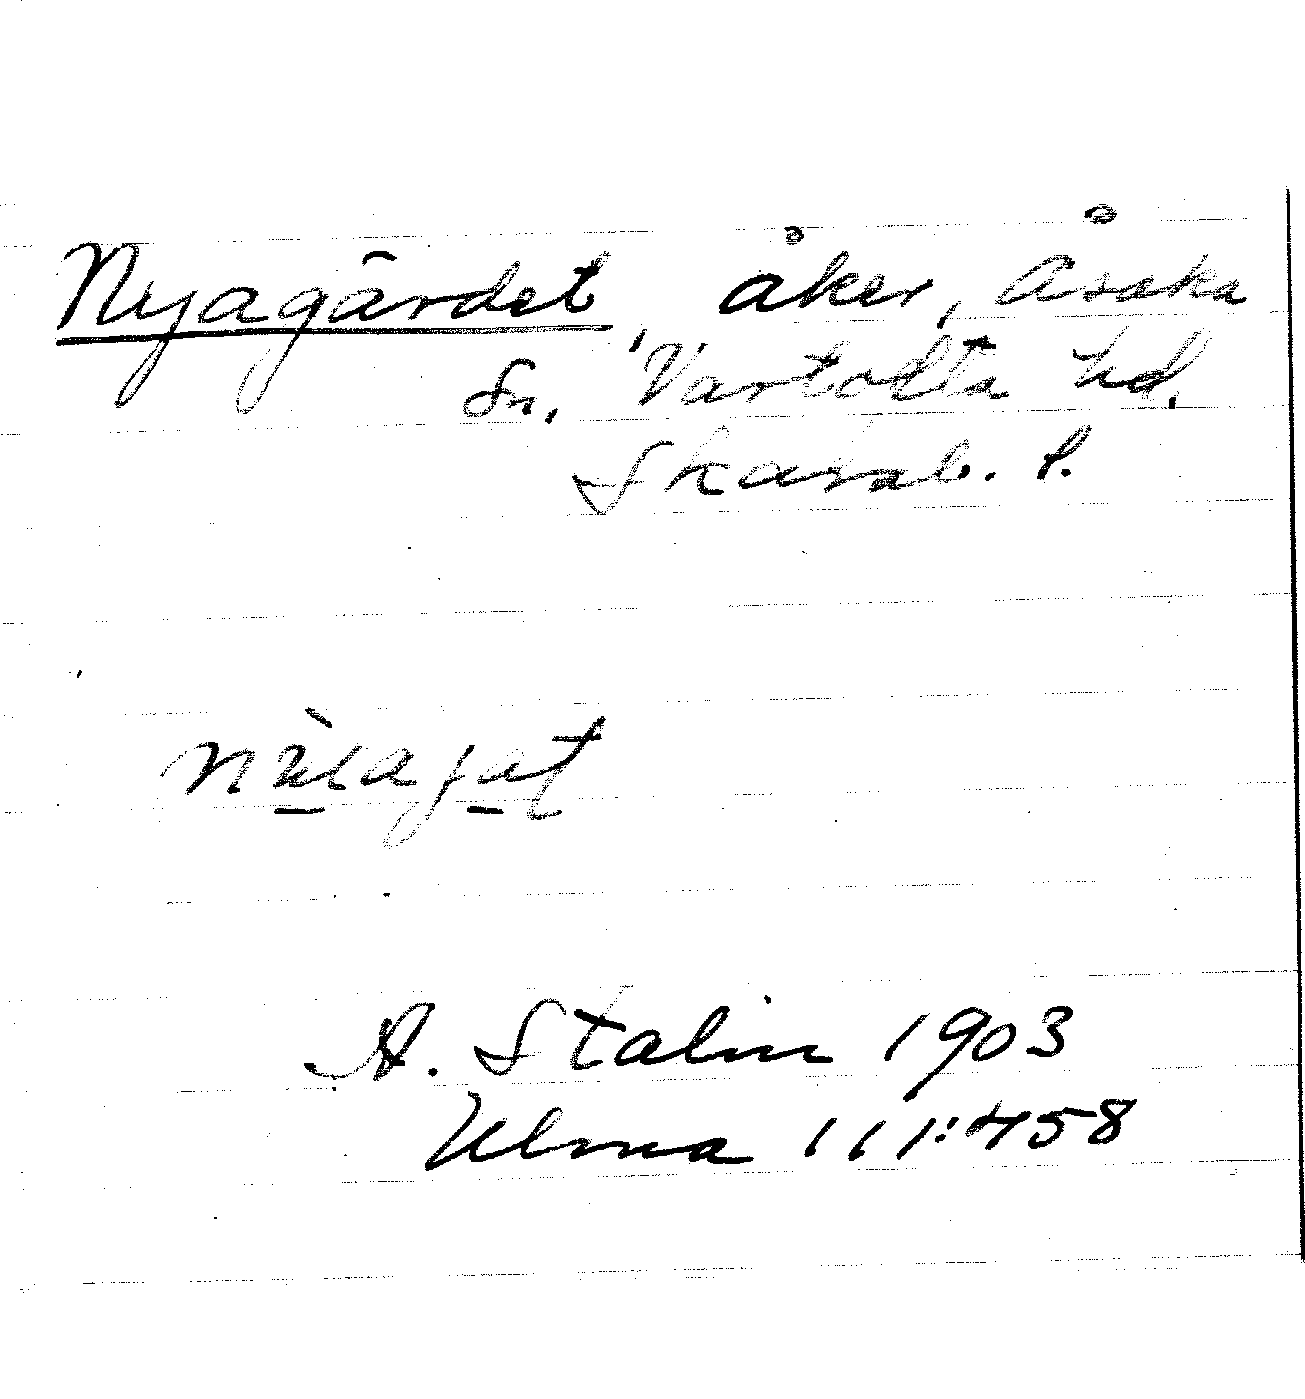 Nyagärdet, åker, Åsaka
sn, Vartofta hd.
Skarab. l.
A. Stalin 1903
Ulma 111:458